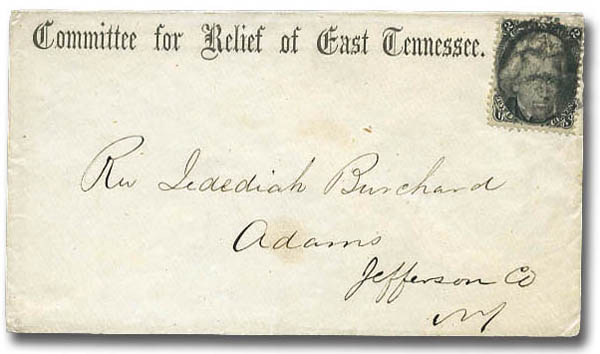 Committee for Relief of East Tennessee.
Rev Jedediah Burchard
Adams
Jefferson Co
NY